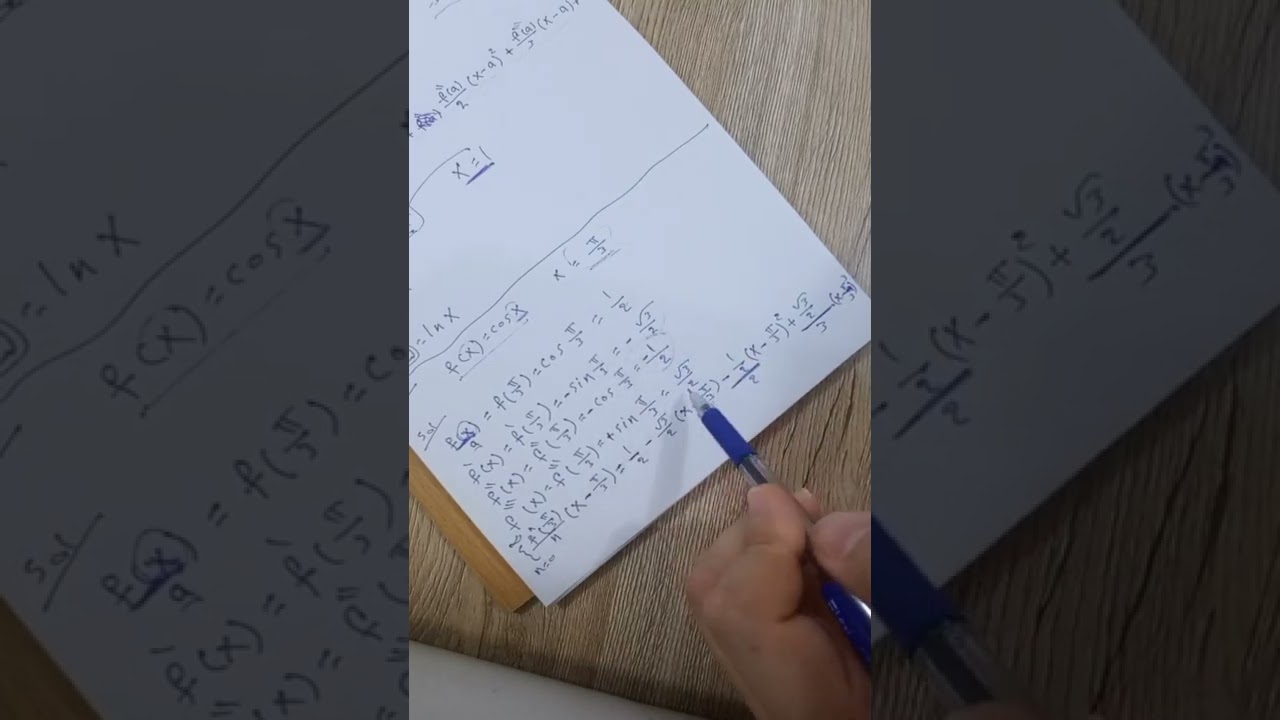 f''(a)/2 (x-a)² + f'''(a)/3 (x-a)
x=1
= ln x
f(x) = cos x
x = π/3
sol
f(x) = f(π/3) = cos π/3 = 1/2
f'(x) = f'(π/3) = -sin π/3 = -√3/2
f''(x) = f''(π/3) = -cos π/3 = -1/2
f'''(x) = f'''(π/3) = +sin π/3 = √3/2
n=0 (x-π/3) = 1/2 - √3/2 (x π/3) - 1/2/2 (x-π/3)² + √3/2/3 (x-π/3)